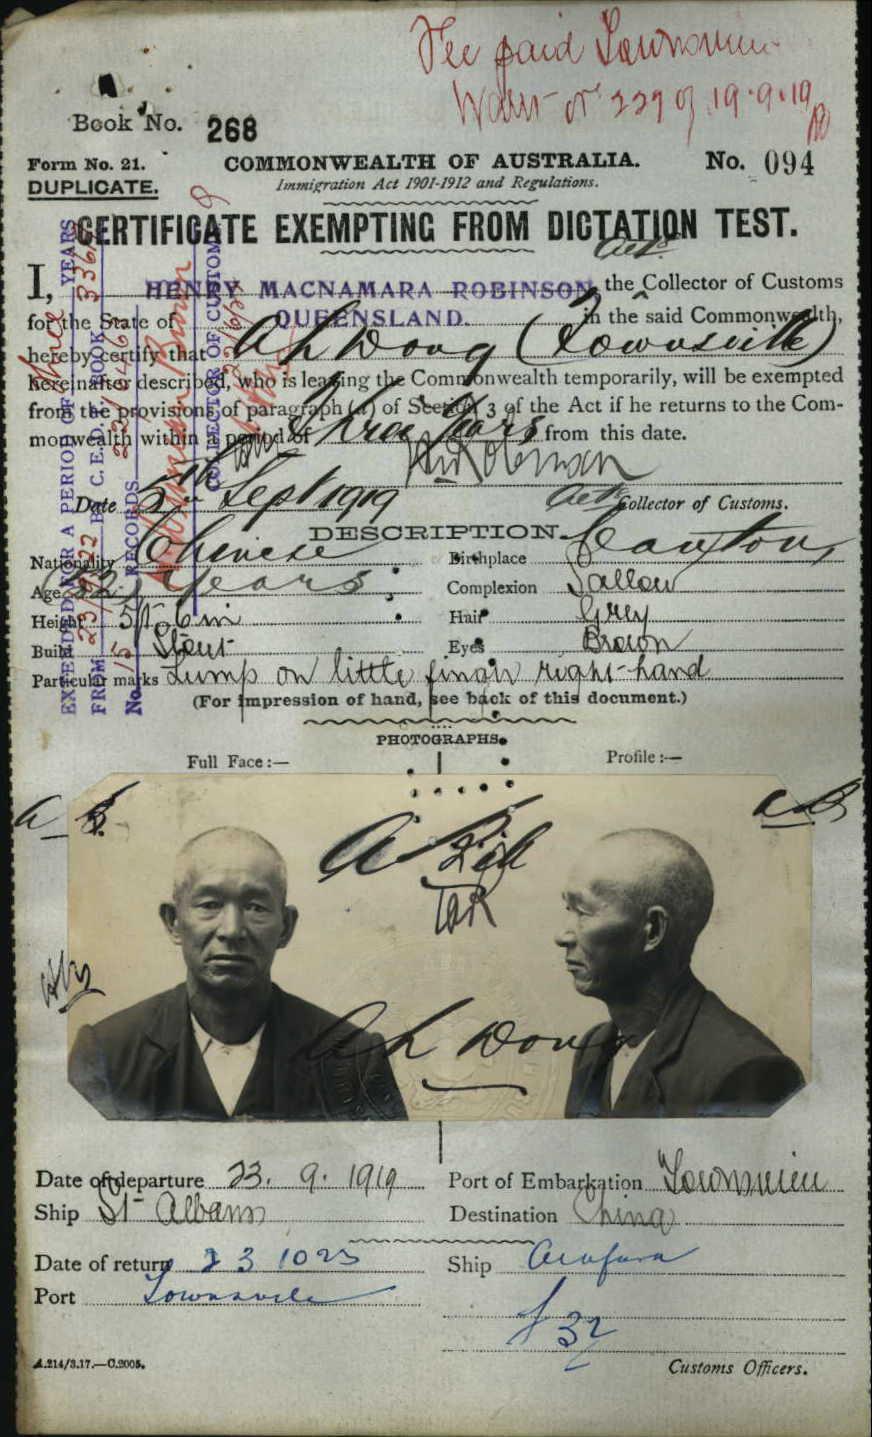 Fee paid Townsville
of 19.9.19
Book No. 268
Form No. 21. COMMONWEALTH OF AUSTRALIA. No. 094
DUPLICATE. Immigration Act 1901-1912 and Regulations.
CERTIFICATE EXEMPTING FROM DICTATION TEST.
I, HENRY MACNAMARA ROBINSON, actg. the Collector of Customs
for the State of QUEENSLAND. in the said Commonwealth,
hereby certify that Ah Dong (Townsville)
hereinafter described, who is leaving the Commonwealth temporarily, will be exempted
from the provisions of paragraph (a) of Section 3 of the Act if he returns to the Com-
monwealth within a period of Three Years from this date.
Date 5th Sept 1919 Actg Collector of Customs.
DESCRIPTION.
Nationality Chinese Birthplace Canton
Age (52) years Complexion Sallow
Height 5ft 6in Hair Grey
Build Stout Eyes Brown
Particular marks Lump on little finger right hand
(For impression of hand, see back of this document.)
PHOTOGRAPHS.
Full Face :— Profile :—
Ah Dong
Date of departure 23. 9. 1919 Port of Embarkation Townsville
Ship St Albans Destination China
Date of return 23 10 23 Ship Arafura
Port Townsville
32
A.214/3.17.—C.2005. Customs Officers.
EXTENDED FOR A PERIOD OF YEARS
FROM BY C. E. D. T. BOOK
No. 15 RECORDS
COLLECTOR OF CUSTOMS